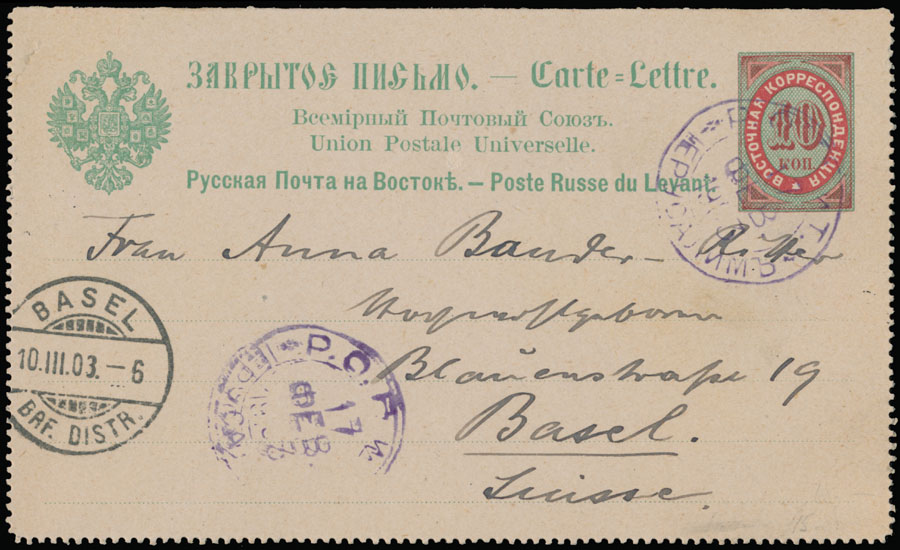 ЗАКРЫТОЕ ПИСЬМО. — Carte=Lettre.
Всемірный Почтовый Союзъ.
Union Postale Universelle.
Русская Почта на Востокѣ. — Poste Russe du Levant.
ВОСТОЧНАЯ КОРРЕСПОНДЕНЦІЯ
10
КОП
Frau Anna Bander-Ritter
Blauenstrasse 19
Basel.
Suisse
BASEL
10.III.03.–6
BRF. DISTR.
Р.О.П. и Т. ІЕРУСАЛИМЪ
17
ФЕВ